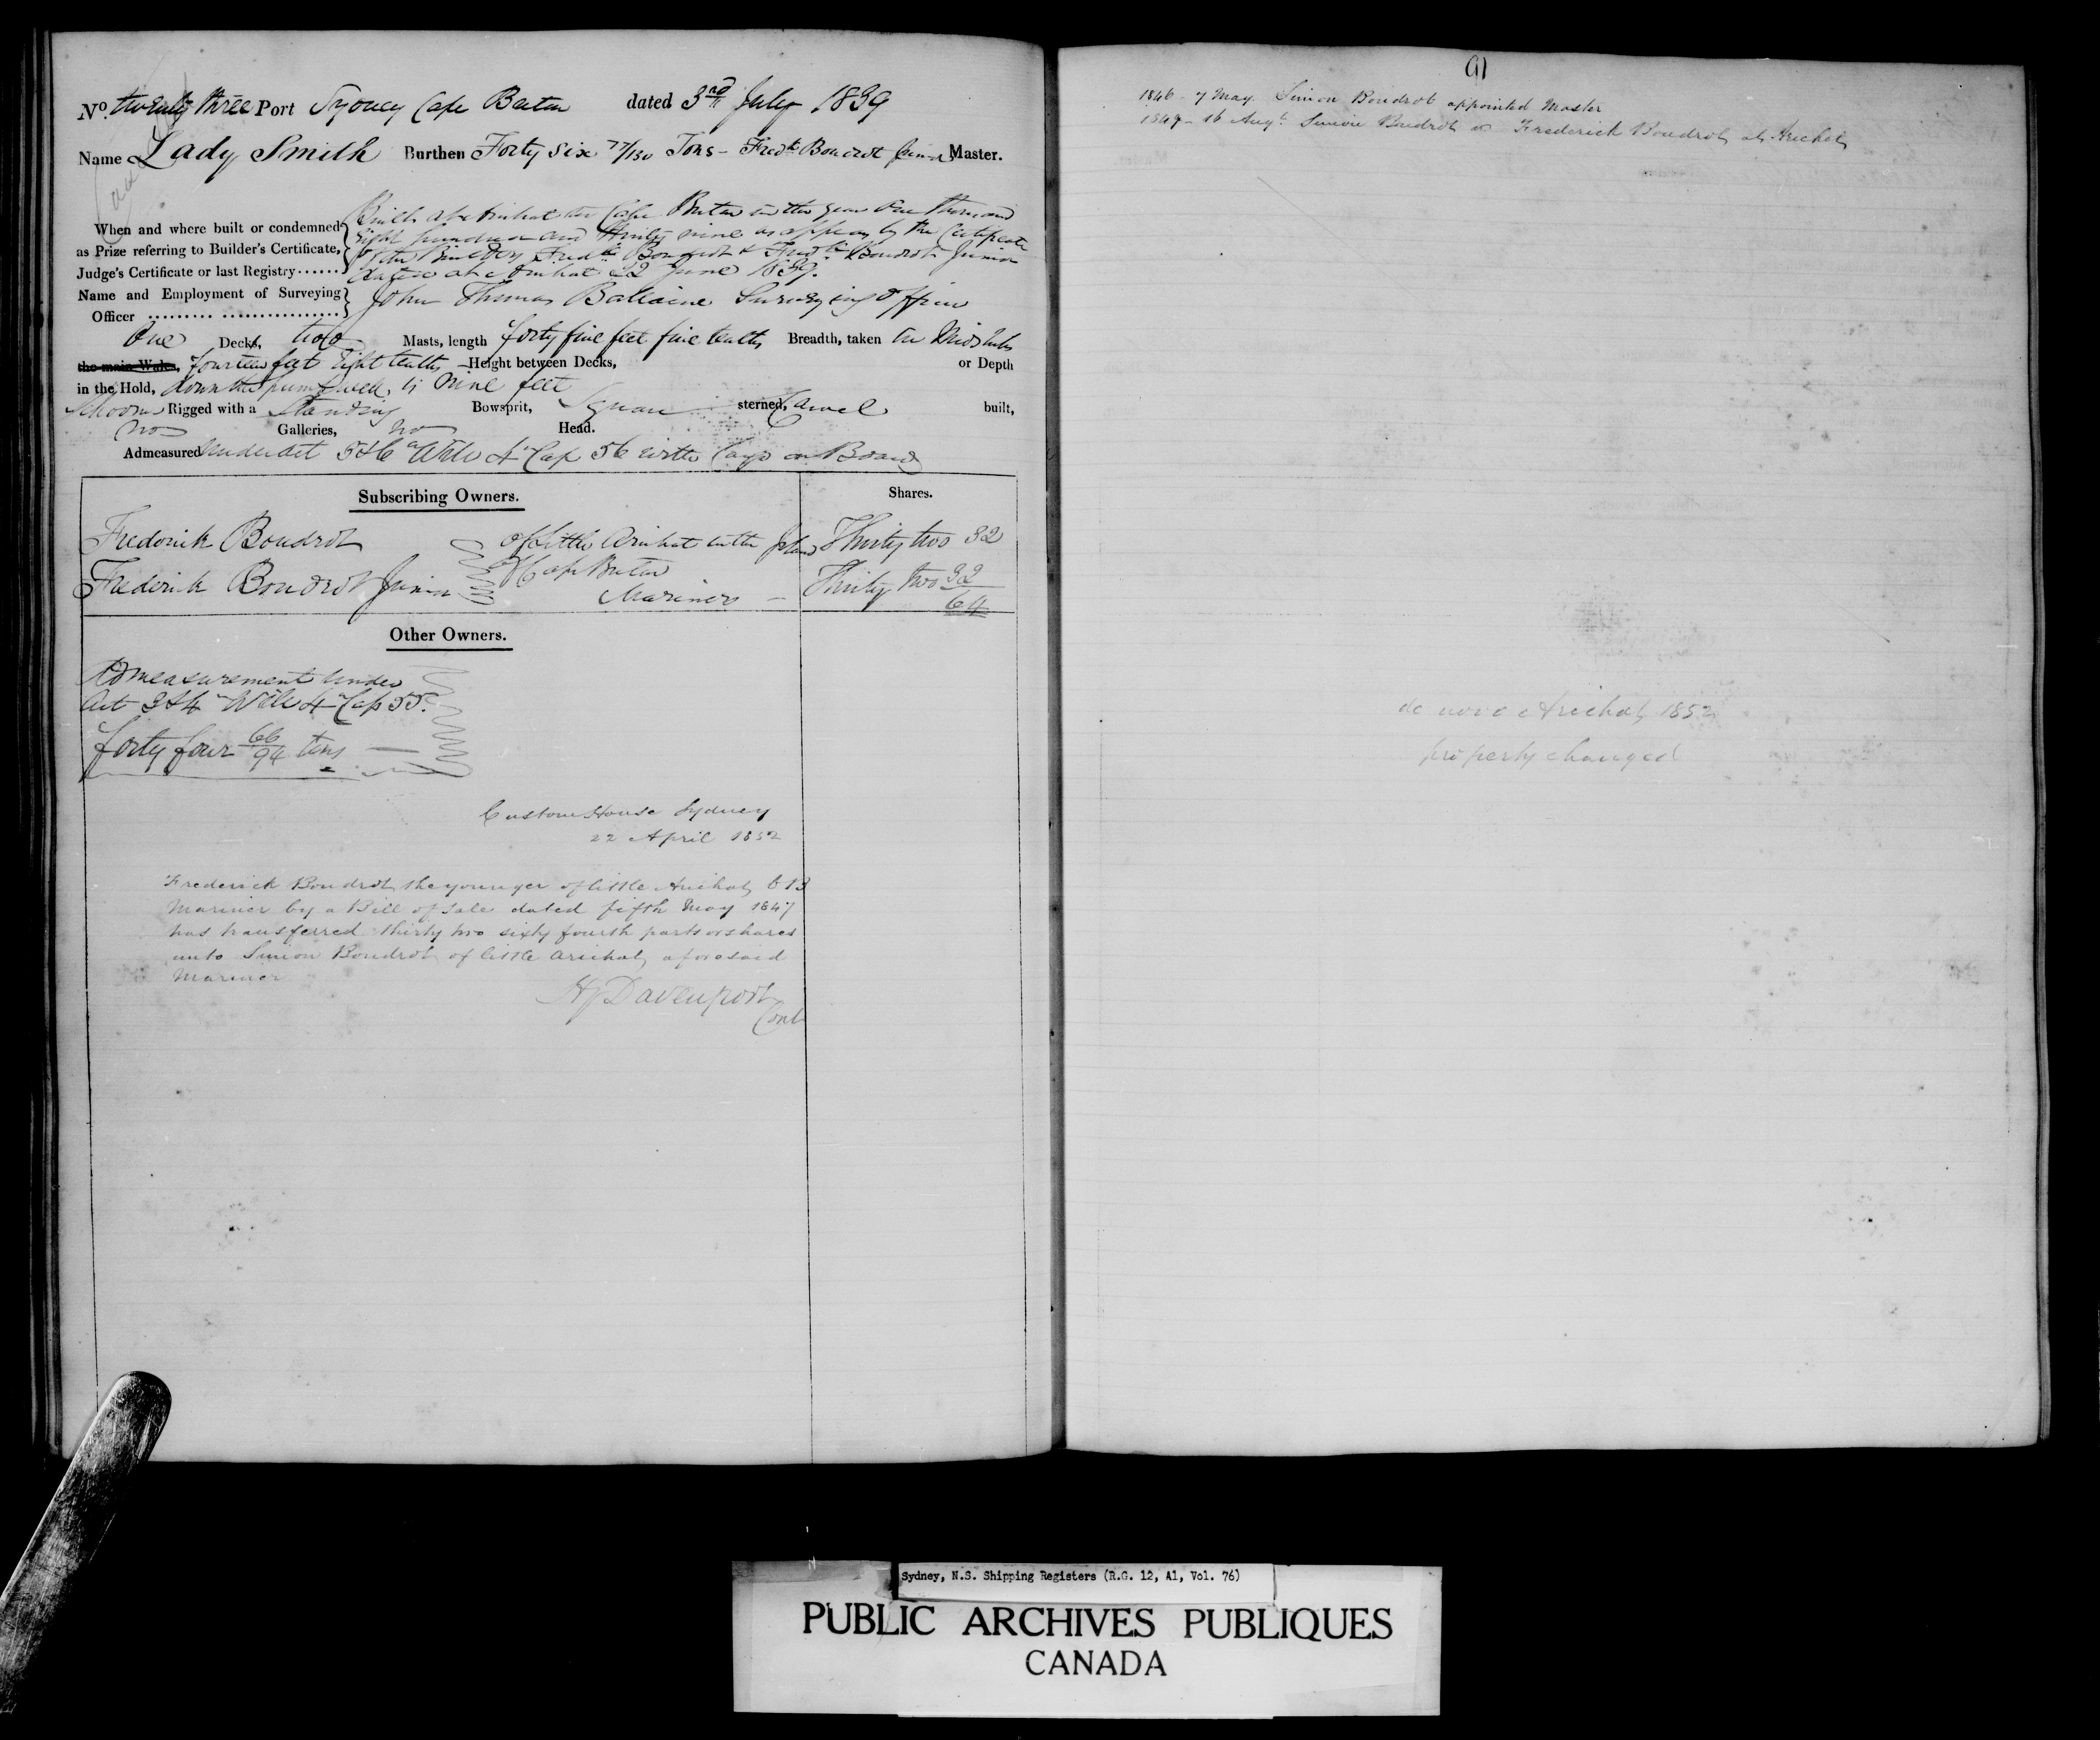 No. twenty three Port Sydney Cape Breton dated 3rd July 1839
Name Lady Smith Burthen Forty six 77/130 Tons - Fredk Boudrot Junior Master.
When and where built or condemned
as Prize referring to Builder's Certificate,
Judge's Certificate or last Registry
Built at Arichat in Cape Breton in the year One thousand
Eight hundred and thirty nine as appears by the Certificate
of the Builders Fredk Boudrot & Fredk Boudrot Junior
dated at Arichat 22 June 1839.
Name and Employment of Surveying
Officer
John Thomas Ballaine Surveying Officer
One Decks, two Masts, length forty five feet five tenths Breadth, taken in Midships
the main Wales, fourteen feet Eight tenths - Height between Decks, or Depth
in the Hold, down the pump well is nine feet
Schooner Rigged with a Standing Bowsprit, Square sterned, Carvel built,
no Galleries, no Head.
Admeasured under act 5 & 6 Will 4 Cap 56 with Cargo on Board
Subscribing Owners. Shares.
Frederick Boudrot of Little Arichat in the Island Thirty two 32
Frederick Boudrot Junior of Cape Breton Thirty two 32
Mariners - 64
Other Owners.
Admeasurement under
Act 3 & 4 Will 4 Cap 55.
forty four 66/94 tons
Custom House Sydney
22 April 1852
Frederick Boudrot the younger of little Arichat C B
Mariner by a Bill of Sale dated fifth May 1847
has transferred thirty two sixty fourth parts or shares
unto Simon Boudrot of little arichat aforesaid
Mariner
HJ Davenport
Cont
91
1846 - 7 May. Simon Boudrot appointed Master
1849 - 16 Augt. Simon Boudrot Frederick Boudrot at Arichat
de novo Arichat 1852
property changed
Sydney, N.S. Shipping Registers (R.G. 12, A1, Vol. 76)
PUBLIC ARCHIVES PUBLIQUES
CANADA